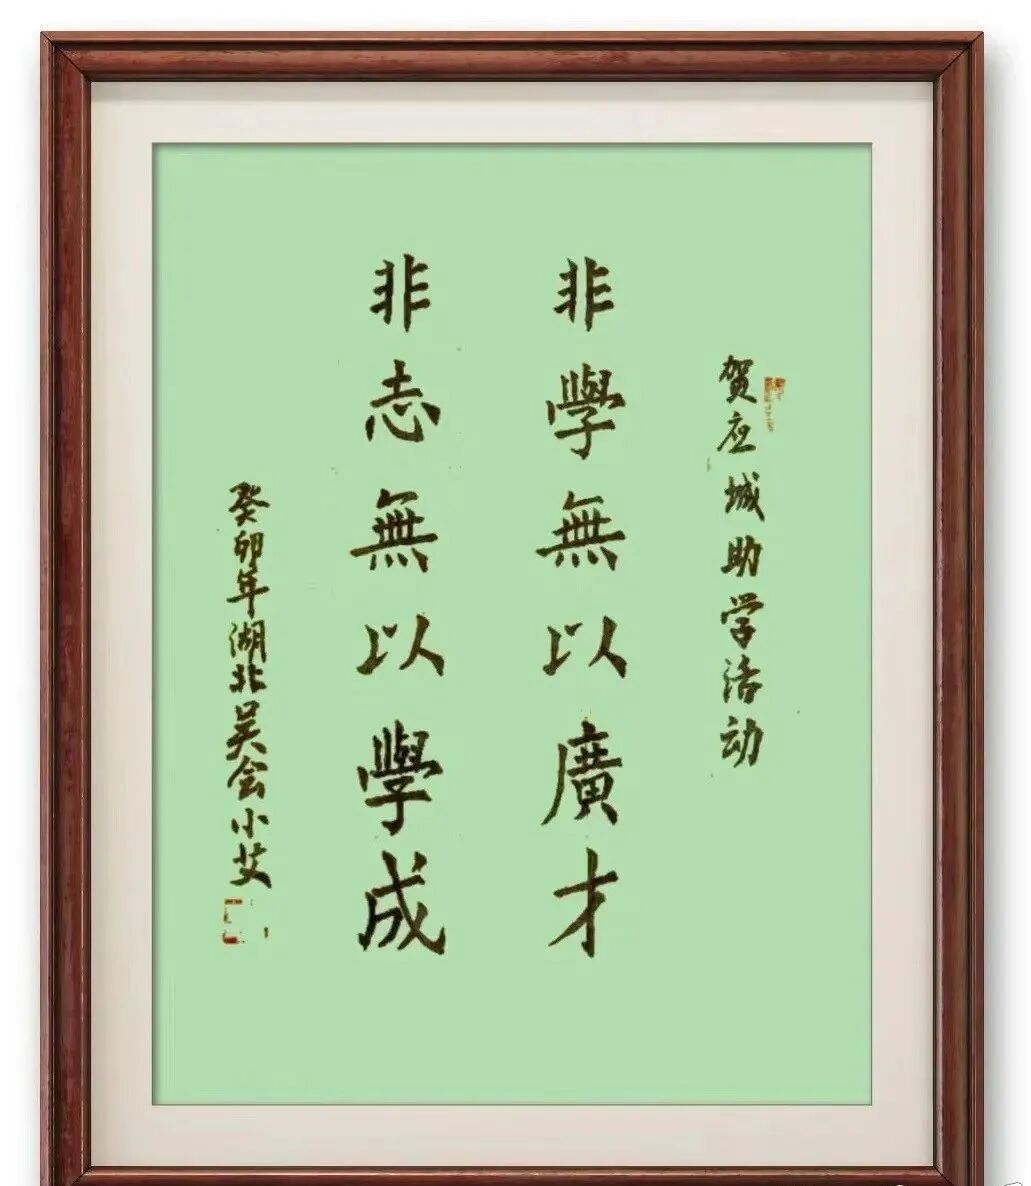 贺应城助学活动
非學無以廣才
非志無以學成
癸卯年湖北吴会小艾